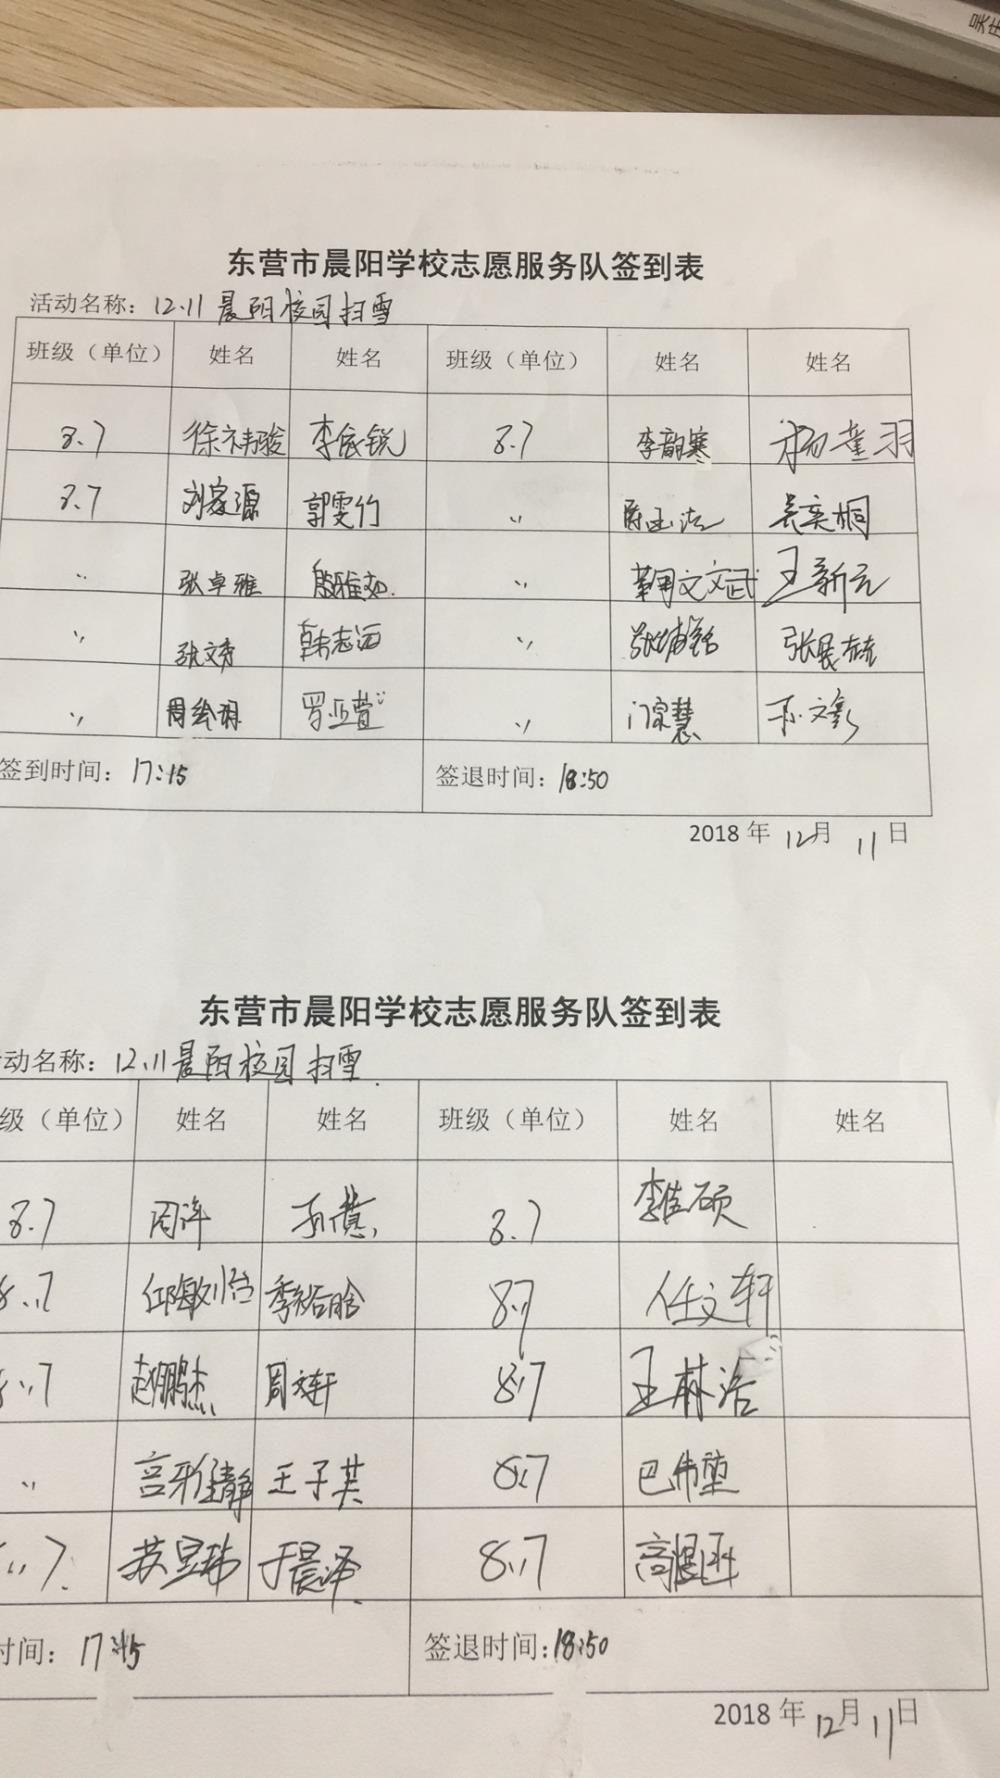 吴庆
东营市晨阳学校志愿服务队签到表
活动名称：12.11 晨阳校园扫雪
班级（单位） 姓名 姓名 班级（单位） 姓名 姓名
8.7 徐祎骏 李依锐 8.7 李韵寒 杨童羽
8.7 刘家源 郭雯竹 〃 吴奕桐
〃 张卓雅 殷雅如 〃 王新元
〃 张文秀 韩志远 〃 张民
〃 罗亚萱 〃 门宗慧 孙文彰
签到时间：17:15 签退时间：18:50
2018 年 12月 11日
东营市晨阳学校志愿服务队签到表
动名称：12.11晨阳校园扫雪
级（单位） 姓名 姓名 班级（单位） 姓名 姓名
8.7 周洋 孙慧 8.7 李佳硕
8.7 季裕晗 8.7 任文轩
8.7 赵鹏杰 周文轩 8.7 王林浩
〃 王子芙 8.7 巴伟堃
8.7 苏昱玮 于晨泽 8.7
时间：17:15 签退时间:18:50
2018 年 12月 11日